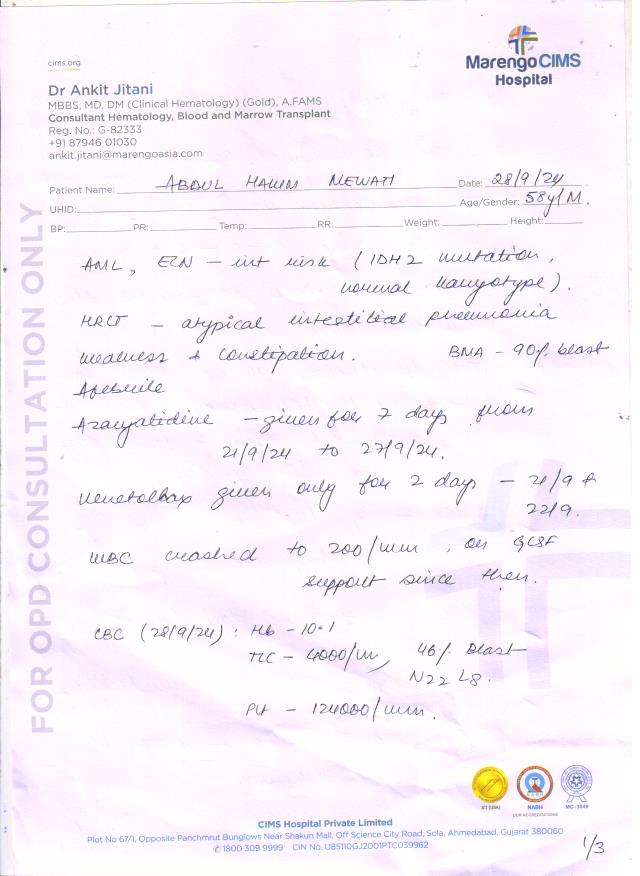 cims.org
Marengo CIMS
Hospital
Dr Ankit Jitani
MBBS, MD, DM (Clinical Hematology) (Gold), A.FAMS
Consultant Hematology, Blood and Marrow Transplant
Reg. No.: G-82333
+91 87946 01030
ankit.jitani@marengoasia.com
Patient Name: ABDUL HAKIM MEWATI Date: 28/9/24
UHID: Age/Gender: 58y/M.
BP: PR: Temp: RR: Weight: Height:
FOR OPD CONSULTATION ONLY
AML, ELN - int risk (IDH2 mutation,
normal karyotype).
HRCT - atypical intestitial pneumonia
weakness + constipation. BMA - 90% blast
Afebrile
Azacytidine - given for 7 days from
21/9/24 to 27/9/24.
Venetoclax given only for 2 days - 21/9 +
22/9.
WBC crashed to 200/mm, on GCSF
support since then.
CBC (28/9/24): Hb - 10.1
TLC - 4000/ 46% Blast
N22 L8.
Plt - 124000/mm.
JCI (USA)
NABH
MC-3049
OUR ACCREDITATIONS
CIMS Hospital Private Limited
Plot No 67/1, Opposite Panchmrut Bunglows Near Shakun Mall, Off Science City Road, Sola, Ahmedabad, Gujarat 380060
1800 309 9999 CIN No. U85110GJ2001PTC039962
1/3